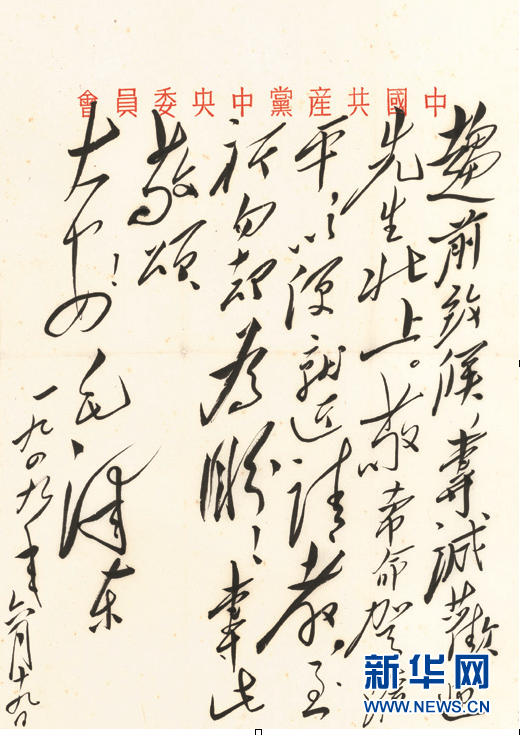 中國共産黨中央委員會
趨前致候,專誠歡迎
先生北上。敬希命駕蒞
平,以便就近請教,至
祈勿却為盼!專此
敬頌
大安!
毛澤東
一九四九年六月十九日
新华网
WWW.NEWS.CN